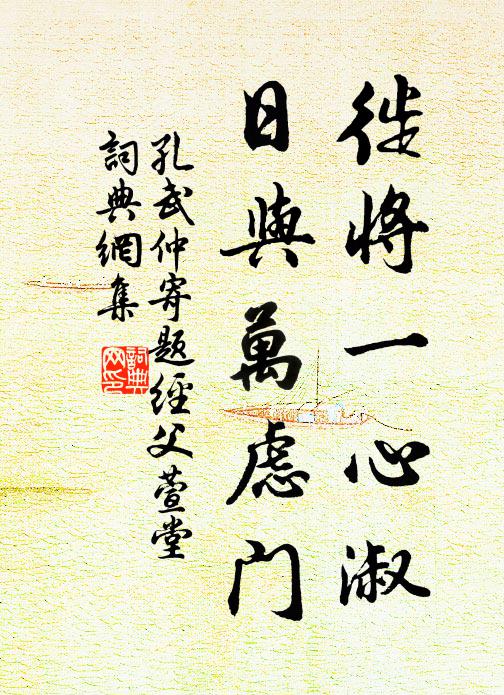 徒將一心淑
日與萬慮門
孔武仲寄題經父萱堂
詞典網集
詞典
网印